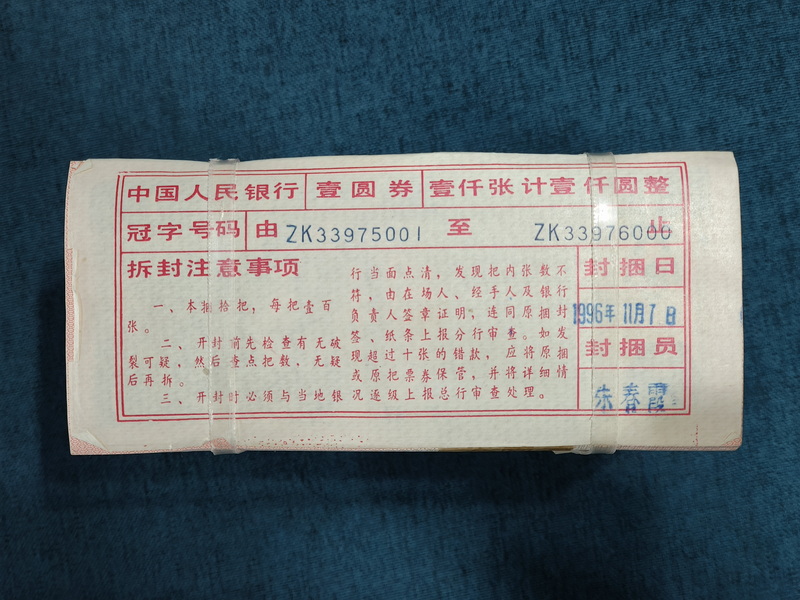 中国人民银行 壹圆券 壹仟张计壹仟圆整
冠字号码 由 ZK33975001 至 ZK33976000 止
拆封注意事项
一、本捆拾把，每把壹百
张。
二、开封前先检查有无破
裂可疑，然后查点把数，无疑
后再拆。
三、开封时必须与当地银
行当面点清，发现把内张数不
符，由在场人、经手人及银行
负责人签章证明，连同原捆封
签、纸条上报分行审查。如发
现超过十张的错款，应将原捆
或原把票券保管，并将详细情
况逐级上报总行审查处理。
封捆日
1996年 11月7日
封捆员
东春霞